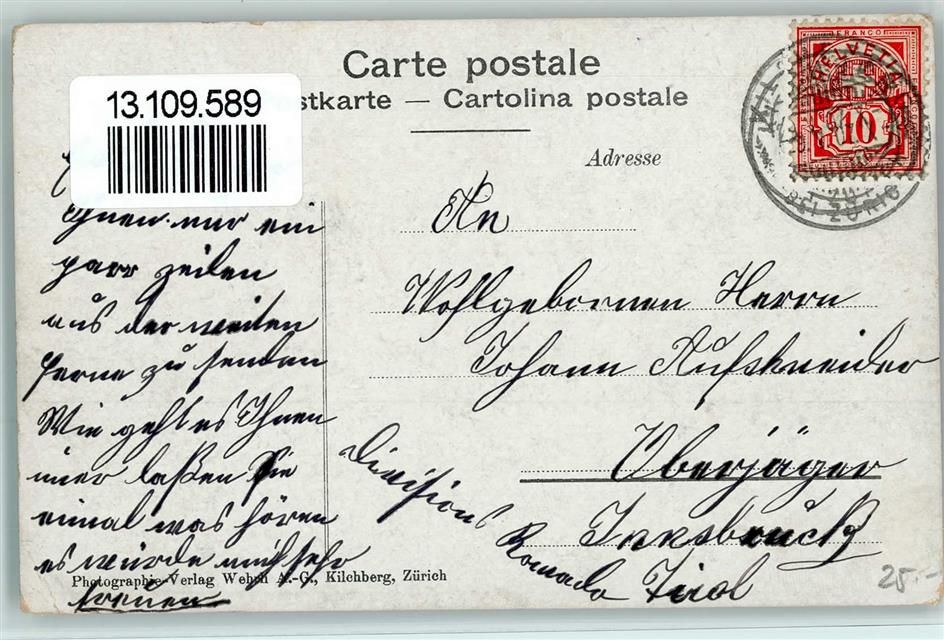 Carte postale
stkarte — Cartolina postale
13.109.589
Adresse
FRANCO
HELVETIA
10
BEI ZÜRICH
Ihnen nur ein
parr zeilen
aus der weiten
ferne zu senden
Wie geht es Ihnen
laßen Sie
einmal was hören
es würde mich sehr
freuen
An
Wohlgebornen Herrn
Johann
Oberjäger
Divisions
Innsbruck
Tirol
25.-
Photographie-Verlag Wehrli A.-G., Kilchberg, Zürich